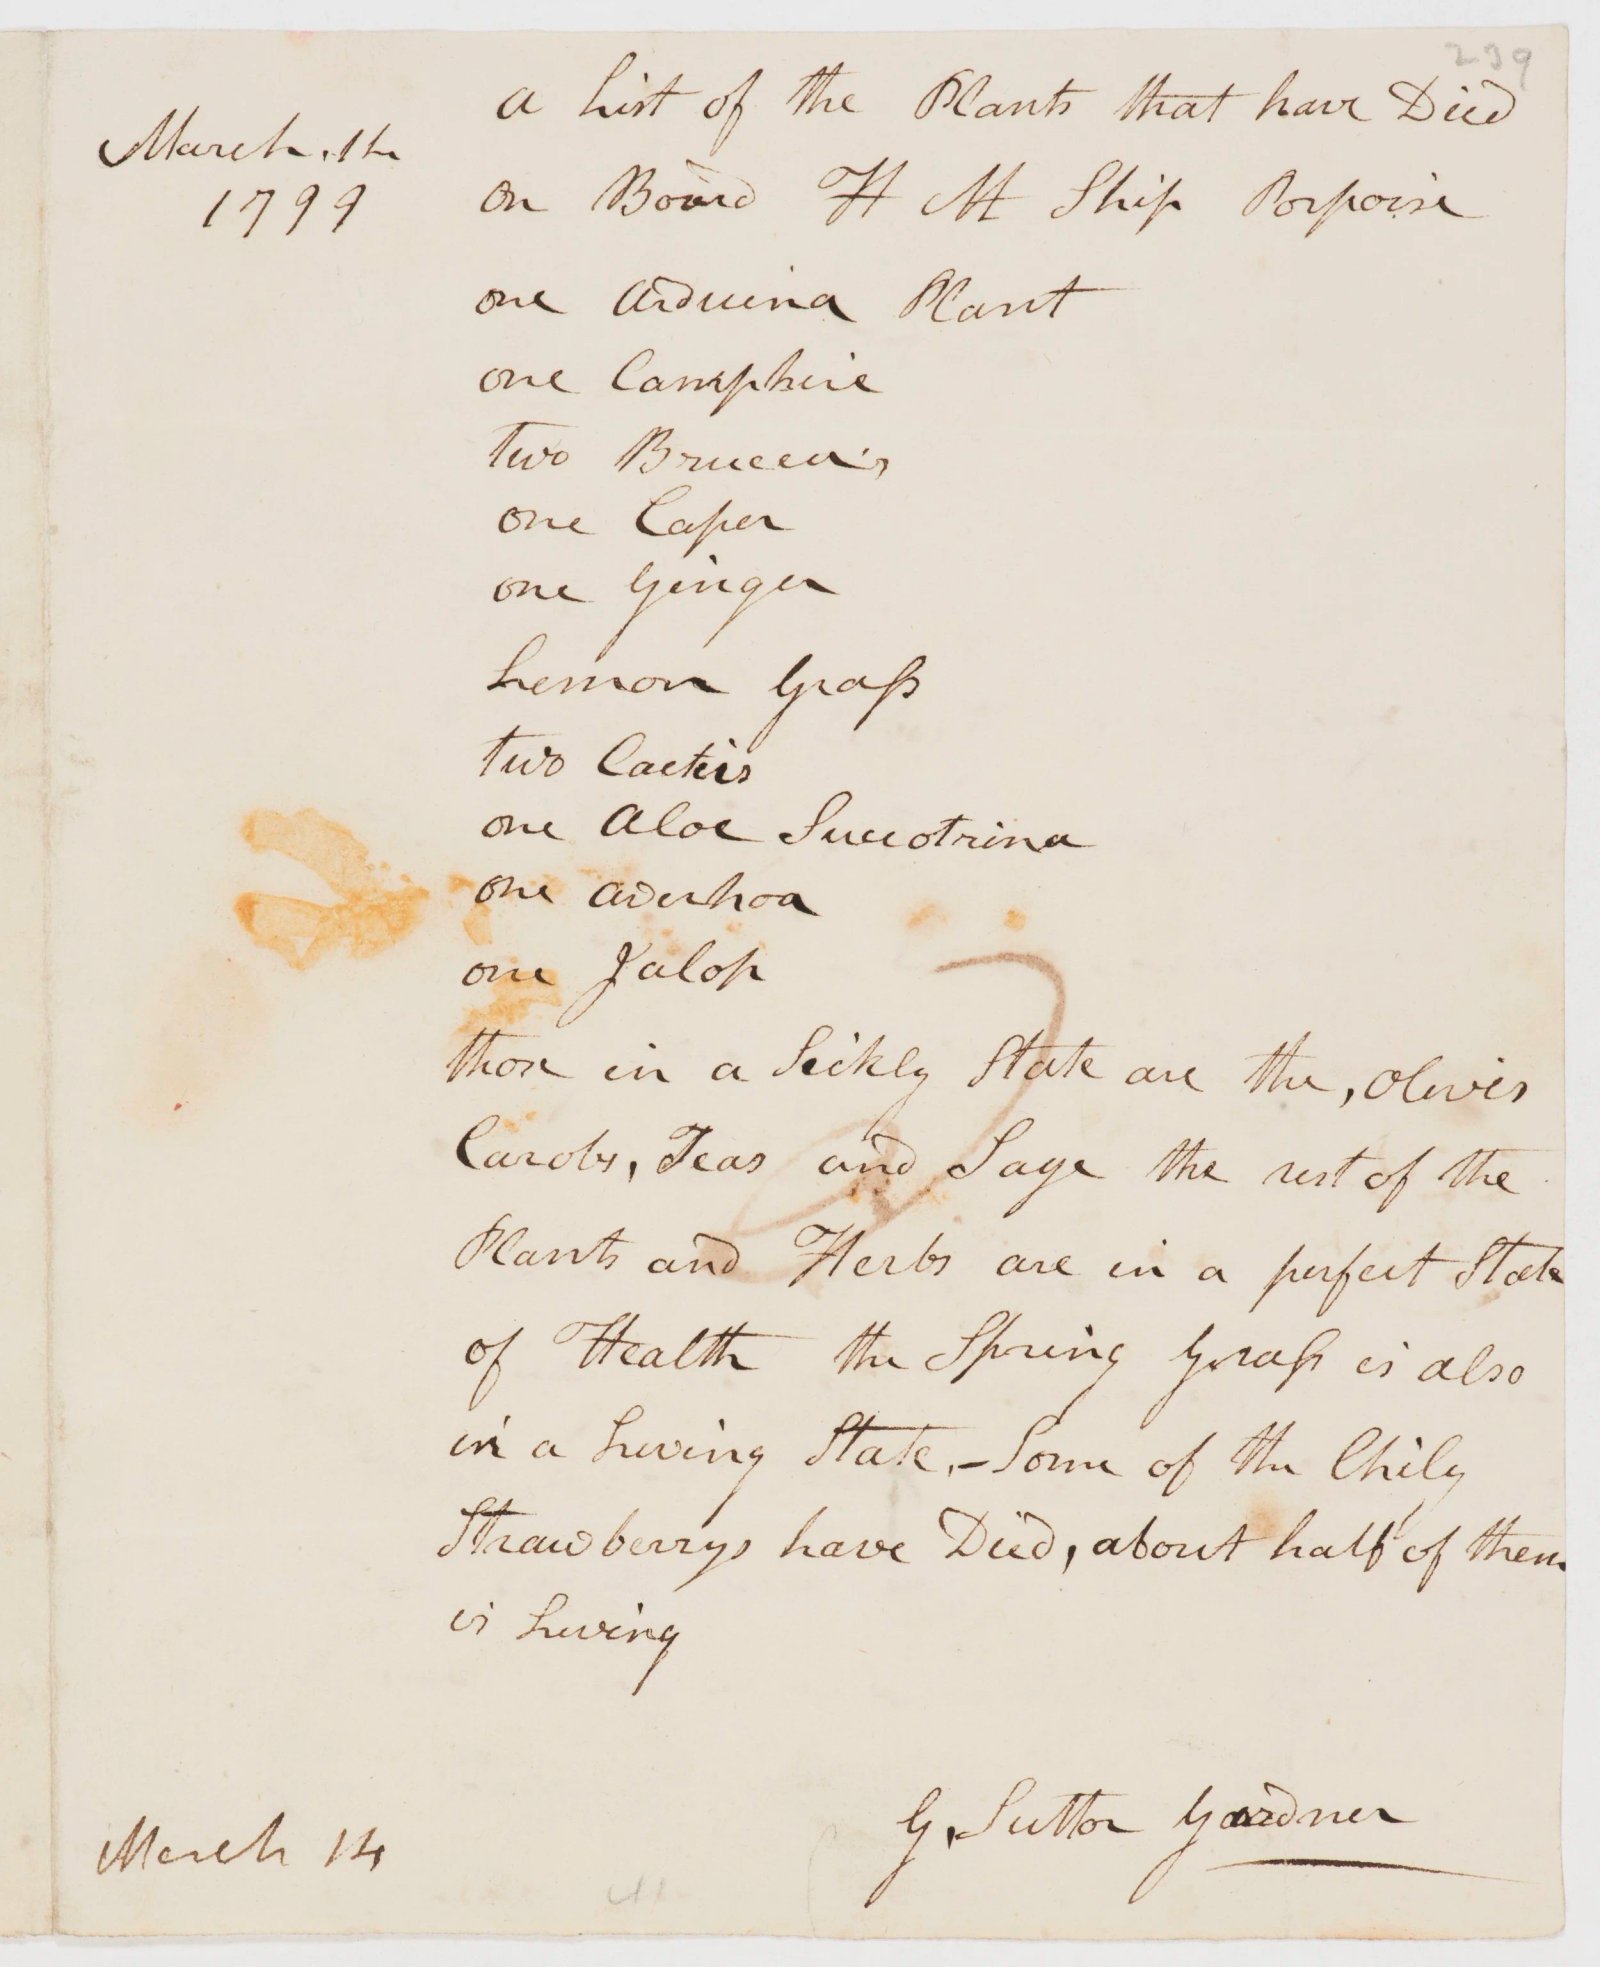 239
a List of the Plants that have Died
March. 14
1799
on Board H M Ship Porpoise
one Arduina Plant
one Camphire
two Brucea's
one Caper
one Ginger
Lemon Grass
two Cactus
one Aloe Succotrina
one Averhoa
one Jalop
those in a Sickly State are the, Olives
Carobs, Teas and Sage the rest of the
Plants and Herbs are in a perfect State
of Health the Spring Grass is also
in a Living State,-Some of the Chily
Strawberrys have Died, about half of them
is Living
G, Suttor Gardner
March 14